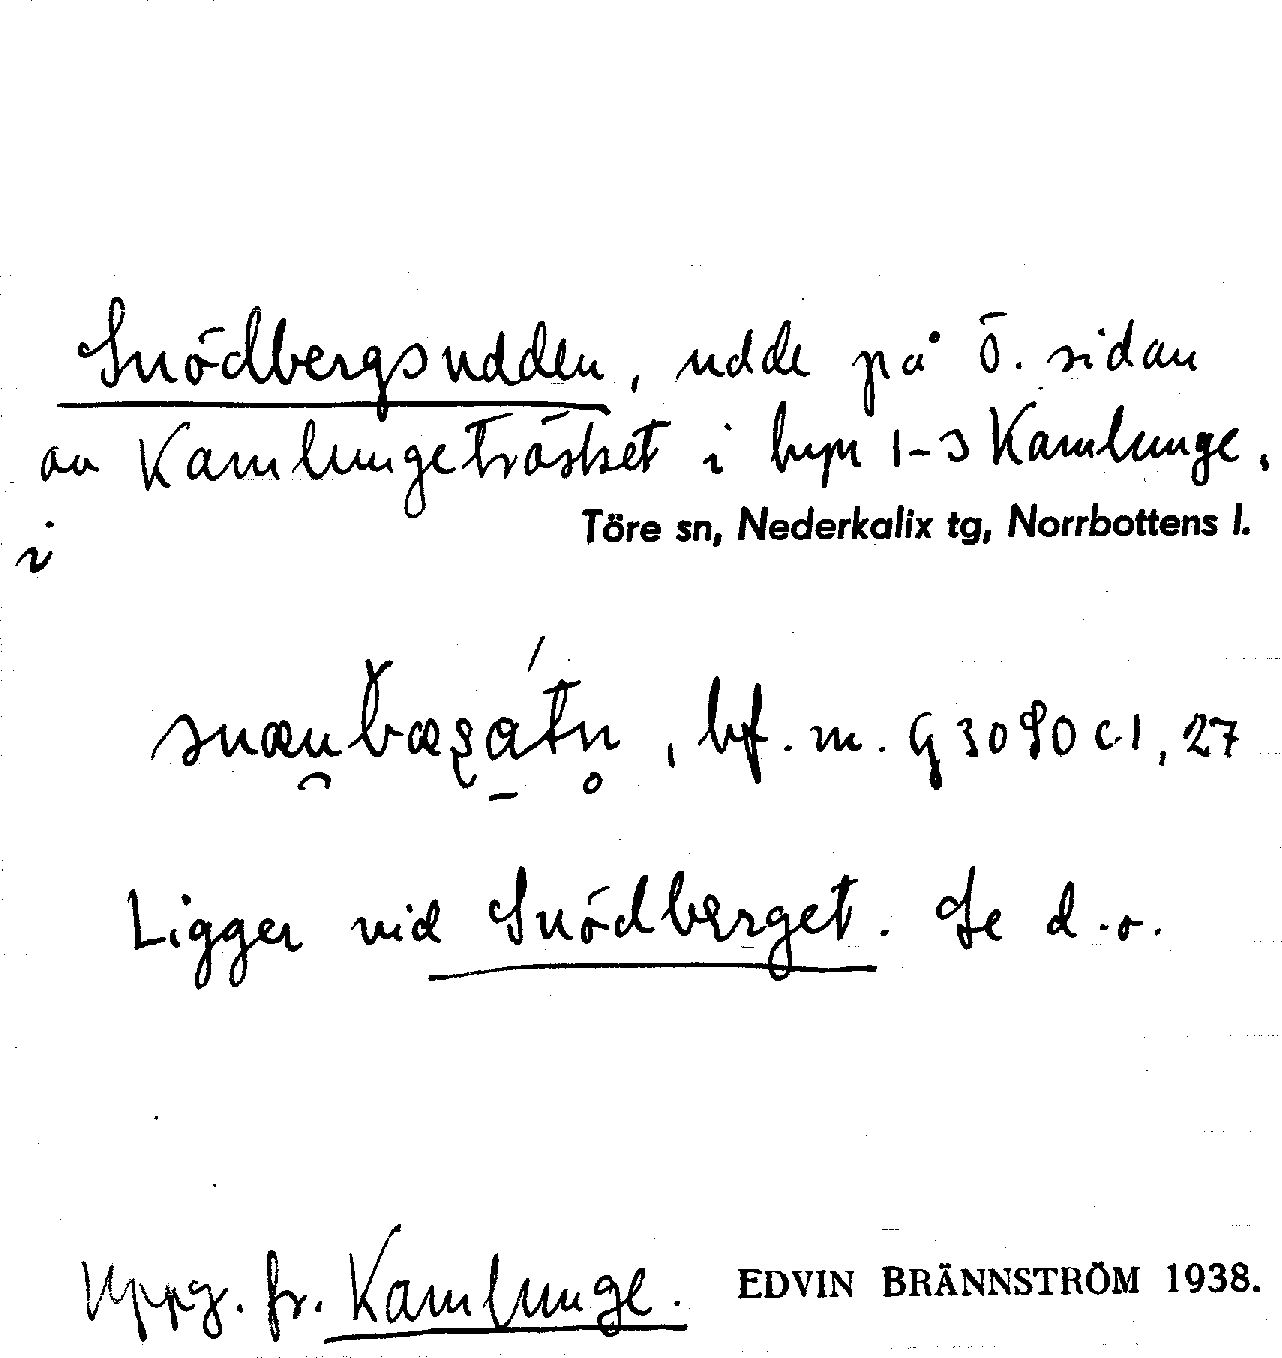 Snödbergsudden, udde på Ö. sidan
av Kamlungeträsket i byn 1-3 Kamlunge,
i Töre sn, Nederkalix tg, Norrbottens l.
, bf. m. G 3090 c 1, 27
Ligger vid Snödberget. Se d.o.
Uppg. fr. Kamlunge. EDVIN BRÄNNSTRÖM 1938.